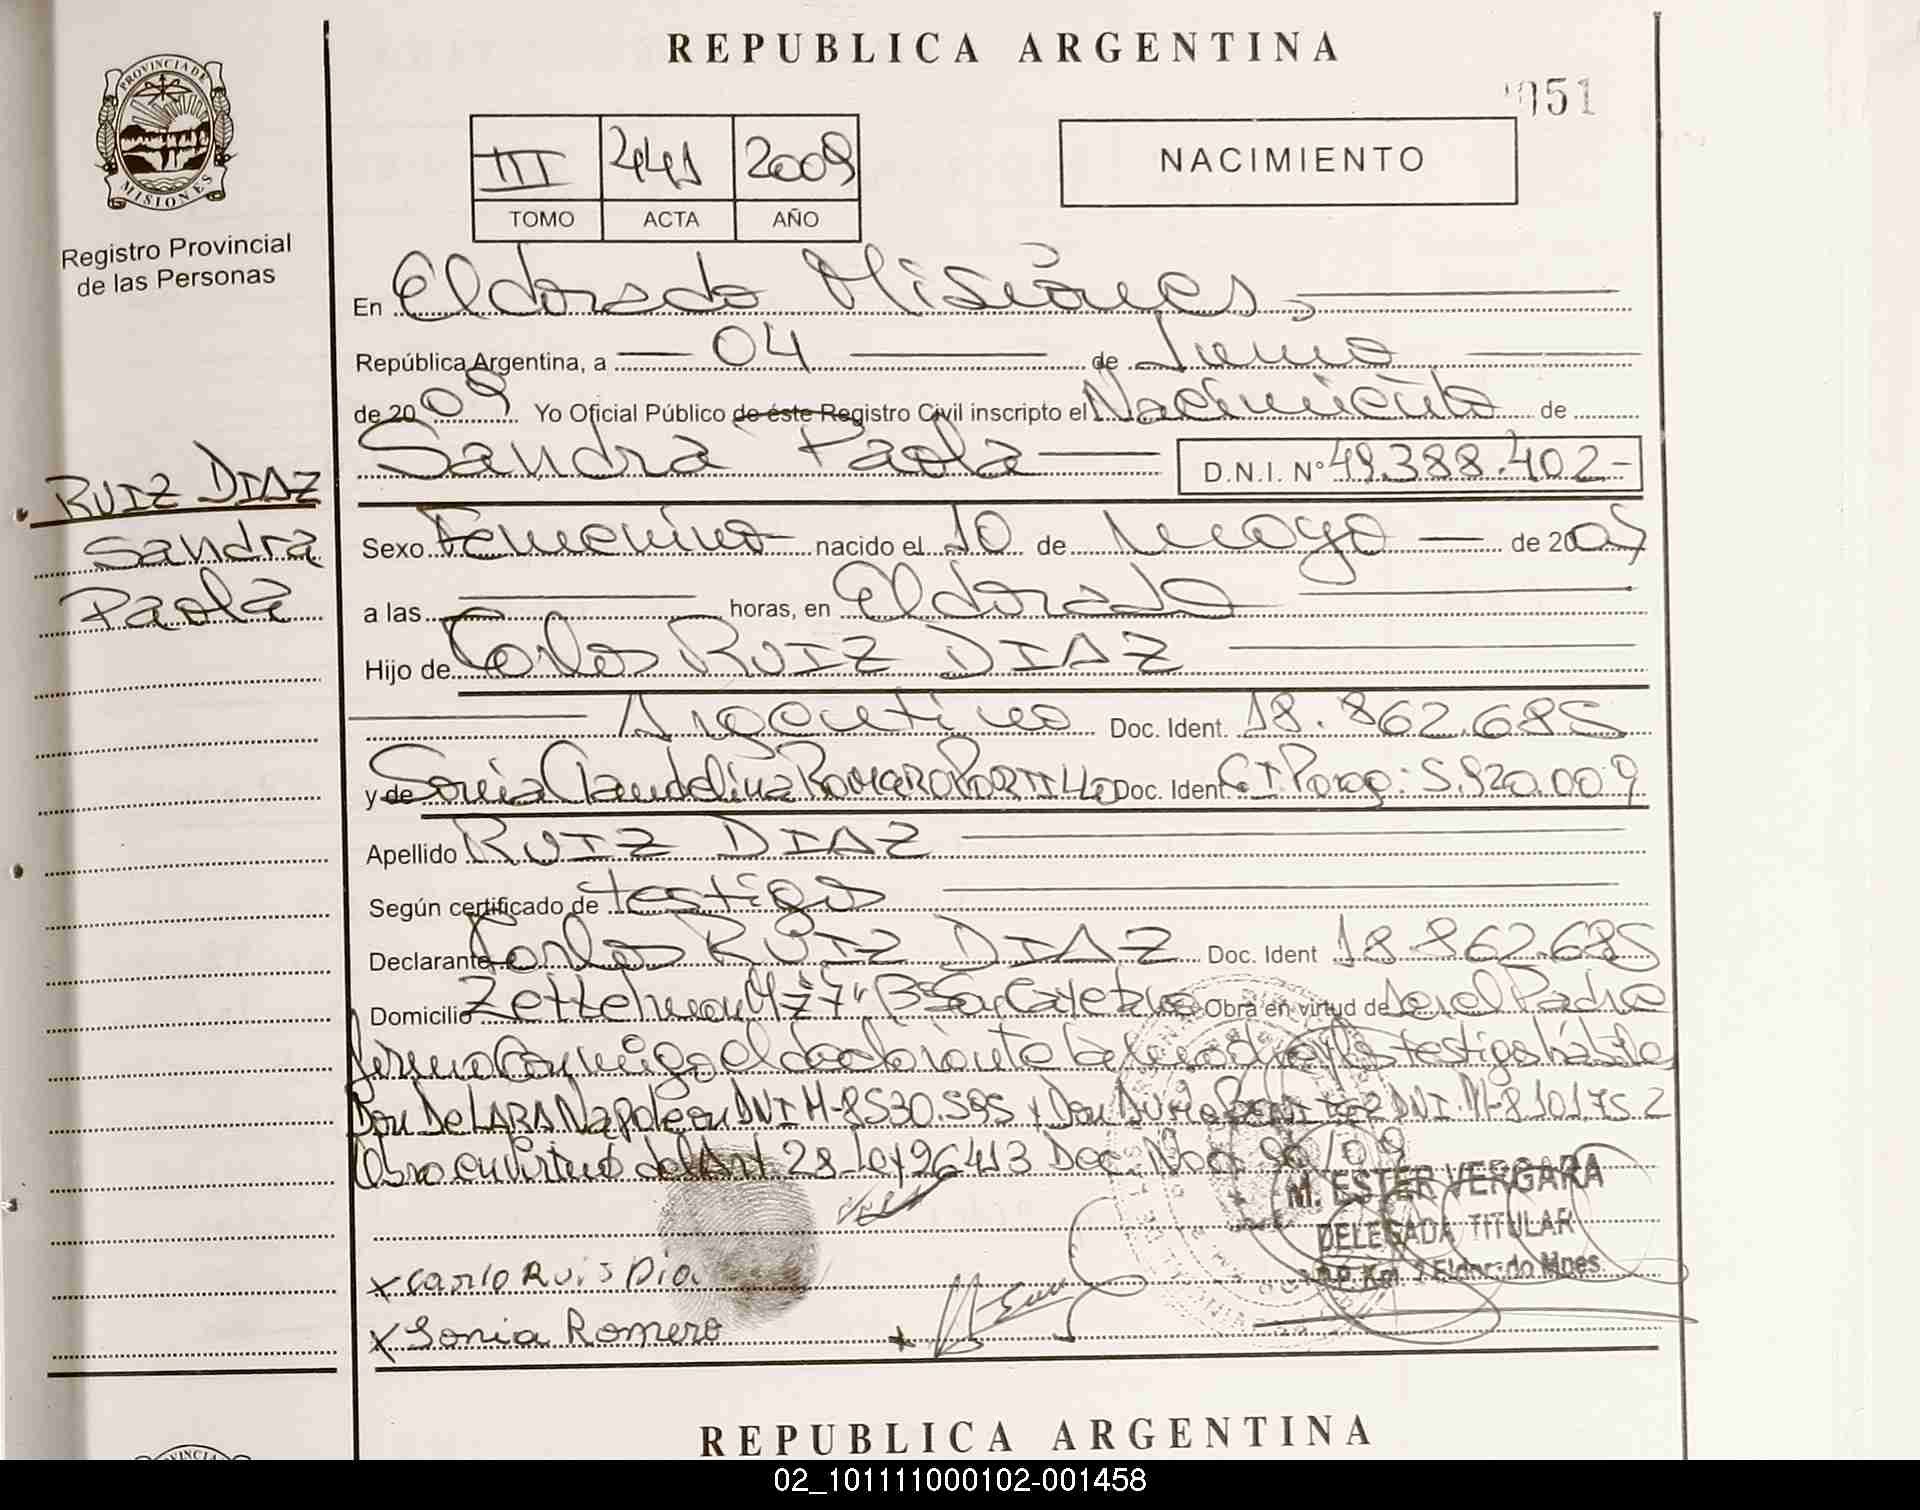 REPUBLICA ARGENTINA
051
PROVINCIA DE
MISIONES
Registro Provincial
de las Personas
III 441 2009
TOMO ACTA AÑO
NACIMIENTO
En Eldorado Misiones,
República Argentina, a 04 de Junio
de 2009 Yo Oficial Público de éste Registro Civil inscripto el Nacimiento de
Sandra Paola D.N.I. Nº 49.388.402-
RUIZ DIAZ
Sandra
Paola
Sexo Femenino nacido el 10 de mayo de 2005
a las horas, en Eldorado
Hijo de Carlos RUIZ DIAZ
Argentino Doc. Ident. 18.862.685
y de Sonia Claudelina ROMERO PORTILLO Doc. Ident C.I Parag: 5.920.009
Apellido RUIZ DIAZ
Según certificado de testigos
Declarante Carlos RUIZ DIAZ Doc. Ident 18.862.685
Domicilio Mz "7" Bº San Cayetano Obra en virtud de ser el Padre
firma conmigo el declarante la madre y los testigos hábiles
Don De LARA Napoleon DNI M-8530.595 y Don DNI. M-8.101.752
Obra en virtud del Art 28 Ley 26413 Dec. Nac 90/09
M. ESTER VERGARA
DELEGADA TITULAR
Eldorado Mnes
x Carlo Ruis Dia
x Sonia Romero
REPUBLICA ARGENTINA
02_101111000102-001458